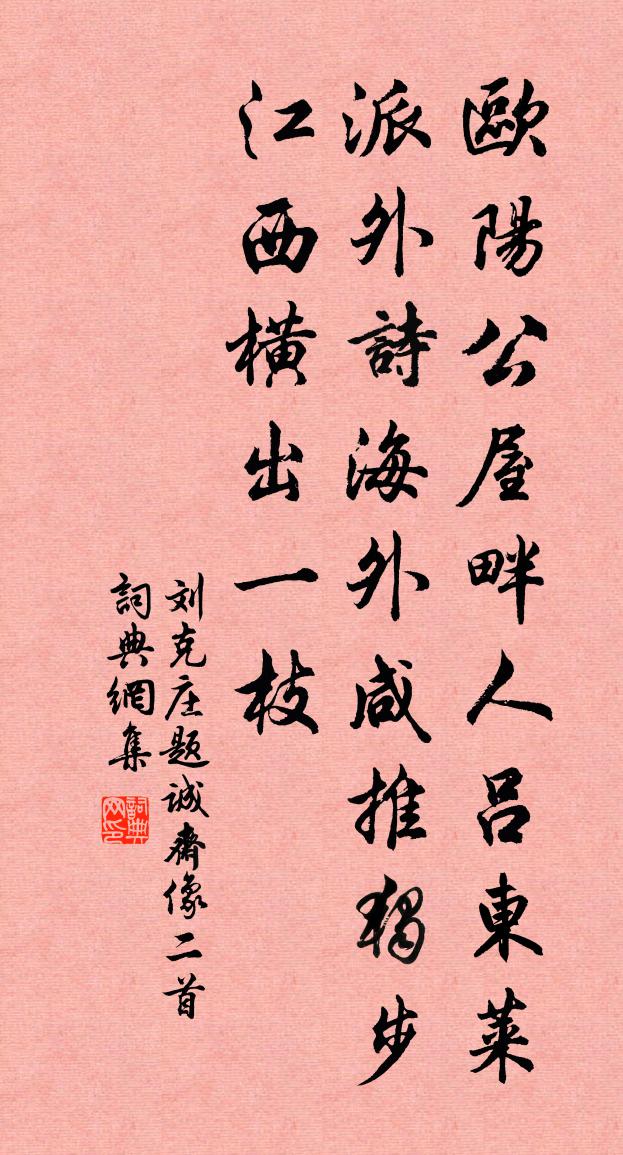 歐陽公屋畔人呂東萊
派外詩海外咸推獨步
江西橫出一枝
刘克庄题诚齋像二首
詞典網集
詞典網印